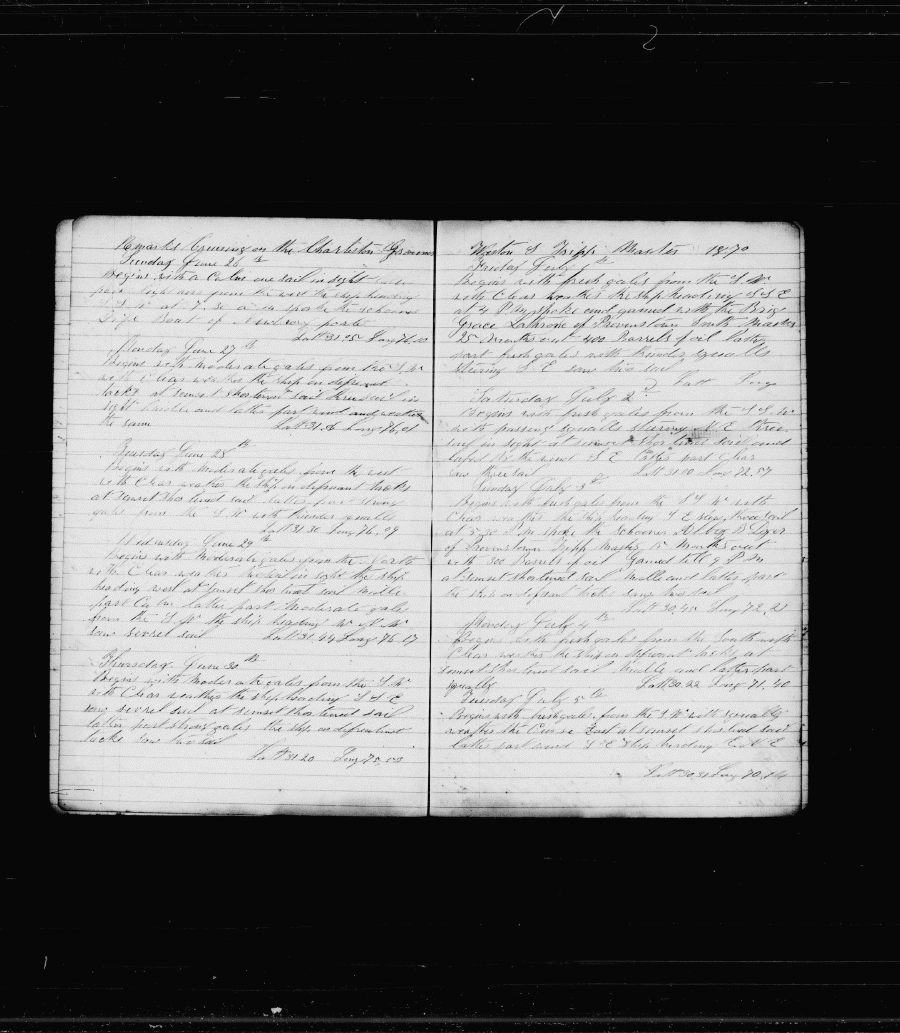 Remarks Cruising on the Charleston Ground
Sunday June 26th
Begins with a Calm one sail in sight
from the west the ship heading
S W at 7.30 a m spoke the schooner
Boat of
Latt 31.05 Long 76.
Monday June 27th
Begins with Moderate gales from the S W
with Clear weather the ship on different
tacks at sunset shortened sail three sail in
sight Middle and latter part wind and weather
the same Latt 31.16 Long 76,01
Tuesday June 28th
Begins with Moderate gales from the west
with Clear weather the ship on different tacks
at sunset shortened sail latter part strong
gales from the S W with thunder squalls
Latt 31.30 Long 76.09
Wednesday June 29th
Begins with Moderate gales from the North
with Clear weather sail in sight the ship
heading west at sunset shortened sail Middle
part Calm latter part Moderate gales
from the S W the ship heading W N W
saw several sail Latt 31,44 Long 76.17
Thursday June 30th
Begins with Moderate gales from the S.W
with Clear weather the ship heading S S E
saw several sail at sunset shortened sail
latter part strong gales the ship on different
tacks saw two sail
Latt 31 20 Long 75,53
S Tripp Master 1870
Friday July
Begins with fresh gales from the S W
with Clear weather the ship heading S S E
at 4 P M spoke and gamed with the Brig
Grace Lothrop of Provincetown Master
25 Months out 400 Barrels of oil latter
part fresh gales with thunder squalls
steering S E saw two sail
Latt Long
Saturday July 2
Begins with fresh gales from the S S W
with passing squalls steering N E three
sail in sight at sunset shortened sail and
the wind S E latter part Clear
saw three sail Latt 31.00 Long 72.57
Sunday July 3d
Begins with fresh gales from the S S W with
Clear weather the ship heading S E saw three sail
at 5.30 P.M spoke the Schooner
of Provincetown Tripp Master 15 Months out
with 300 Barrels of oil Gamed till 9 P M
at sunset shortened sail Middle and latter part
the ship on different tacks saw two sail
Latt 30,40 Long 72,21
Monday July 4th
Begins with fresh gales from the South with
Clear weather the ship on different tacks at
sunset shortened sail Middle and latter part
squally Latt 30.22 Long 71,40
Tuesday July 5th
Begins with fresh gales from the S W with squally
weather the Course East at sunset shortened sail
latter part wind S E ship heading E N E
Latt 30 31 Long 70,14